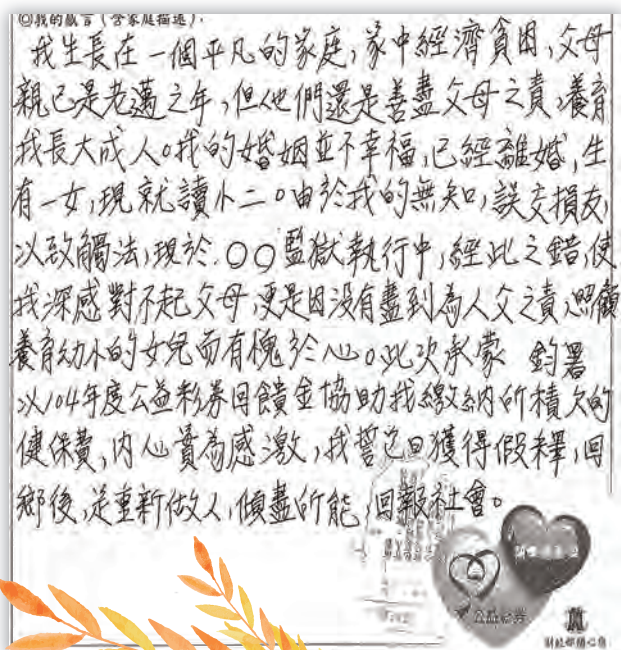 ◎我的感言(含家庭描述):
我生長在一個平凡的家庭,家中經濟貧困,父母
親已是老邁之年,但他們還是善盡父母之責,養育
我長大成人。我的婚姻並不幸福,已經離婚,生
有一女,現就讀小二。由於我的無知,誤交損友,
以致觸法,現於○○監獄執行中,經此之錯,使
我深感對不起父母,更是因沒有盡到為人父之責,照顧
養育幼小的女兒而有愧於心。此次承蒙 鈞署
以104年度公益彩券回饋金協助我繳納所積欠的
健保費,內心實為感激,我誓言獲得假釋,回
鄉後,定重新做人,傾盡所能,回報社會。
公益彩券
財政部關心您